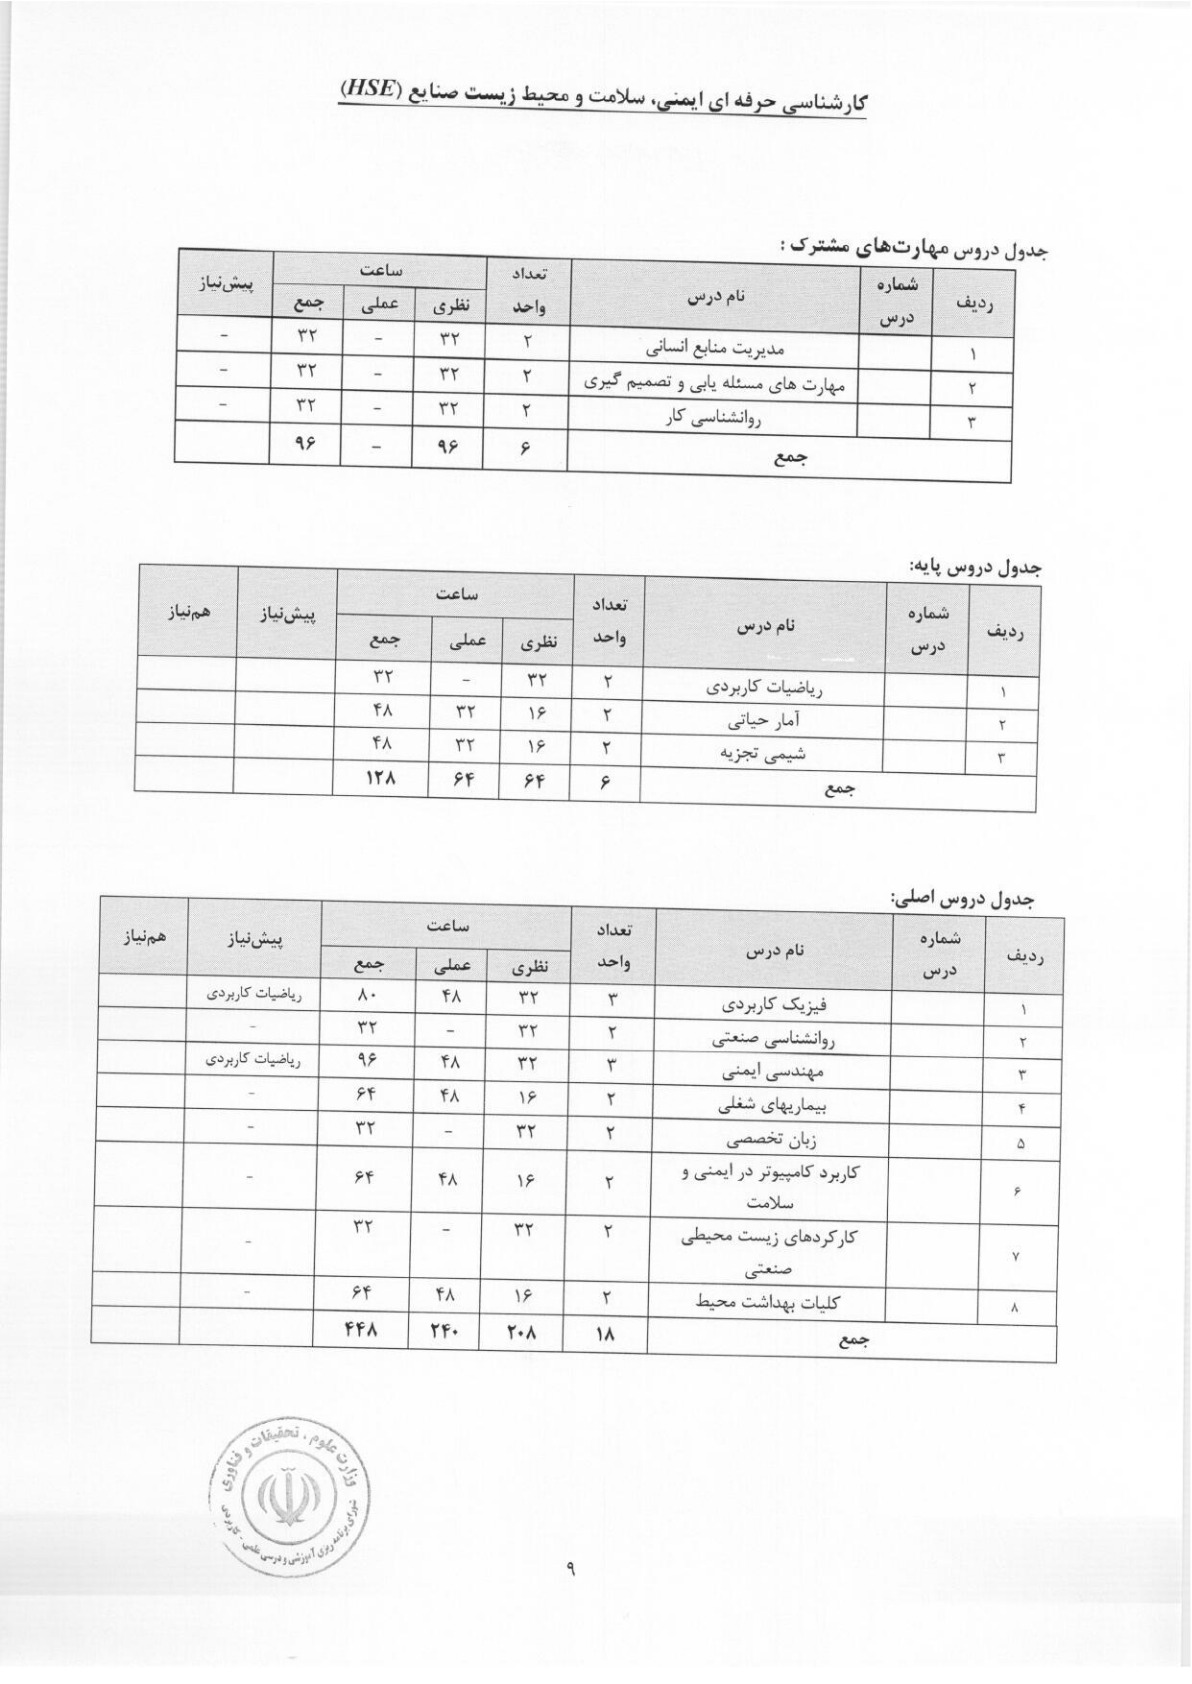 کارشناسی حرفه ای ایمنی، سلامت و محیط زیست صنایع (HSE)
جدول دروس مهارت‌های مشترک :
ردیف | شماره درس | نام درس | تعداد واحد | ساعت | پیش‌نیاز
نظری | عملی | جمع
۱ | مدیریت منابع انسانی | ۲ | ۳۲ | - | ۳۲ | -
۲ | مهارت های مسئله یابی و تصمیم گیری | ۲ | ۳۲ | - | ۳۲ | -
۳ | روانشناسی کار | ۲ | ۳۲ | - | ۳۲ | -
جمع | ۶ | ۹۶ | - | ۹۶
جدول دروس پایه:
ردیف | شماره درس | نام درس | تعداد واحد | ساعت | پیش‌نیاز | هم‌نیاز
نظری | عملی | جمع
۱ | ریاضیات کاربردی | ۲ | ۳۲ | - | ۳۲
۲ | آمار حیاتی | ۲ | ۱۶ | ۳۲ | ۴۸
۳ | شیمی تجزیه | ۲ | ۱۶ | ۳۲ | ۴۸
جمع | ۶ | ۶۴ | ۶۴ | ۱۲۸
جدول دروس اصلی:
ردیف | شماره درس | نام درس | تعداد واحد | ساعت | پیش‌نیاز | هم‌نیاز
نظری | عملی | جمع
۱ | فیزیک کاربردی | ۳ | ۳۲ | ۴۸ | ۸۰ | ریاضیات کاربردی
۲ | روانشناسی صنعتی | ۲ | ۳۲ | - | ۳۲ | -
۳ | مهندسی ایمنی | ۳ | ۳۲ | ۴۸ | ۹۶ | ریاضیات کاربردی
۴ | بیماریهای شغلی | ۲ | ۱۶ | ۴۸ | ۶۴ | -
۵ | زبان تخصصی | ۲ | ۳۲ | - | ۳۲ | -
۶ | کاربرد کامپیوتر در ایمنی و سلامت | ۲ | ۱۶ | ۴۸ | ۶۴ | -
۷ | کارکردهای زیست محیطی صنعتی | ۲ | ۳۲ | - | ۳۲ | -
۸ | کلیات بهداشت محیط | ۲ | ۱۶ | ۴۸ | ۶۴ | -
جمع | ۱۸ | ۲۰۸ | ۲۴۰ | ۴۴۸
وزارت علوم، تحقیقات و فناوری
شورای برنامه ریزی آموزشی و درسی علمی - کاربردی
۹